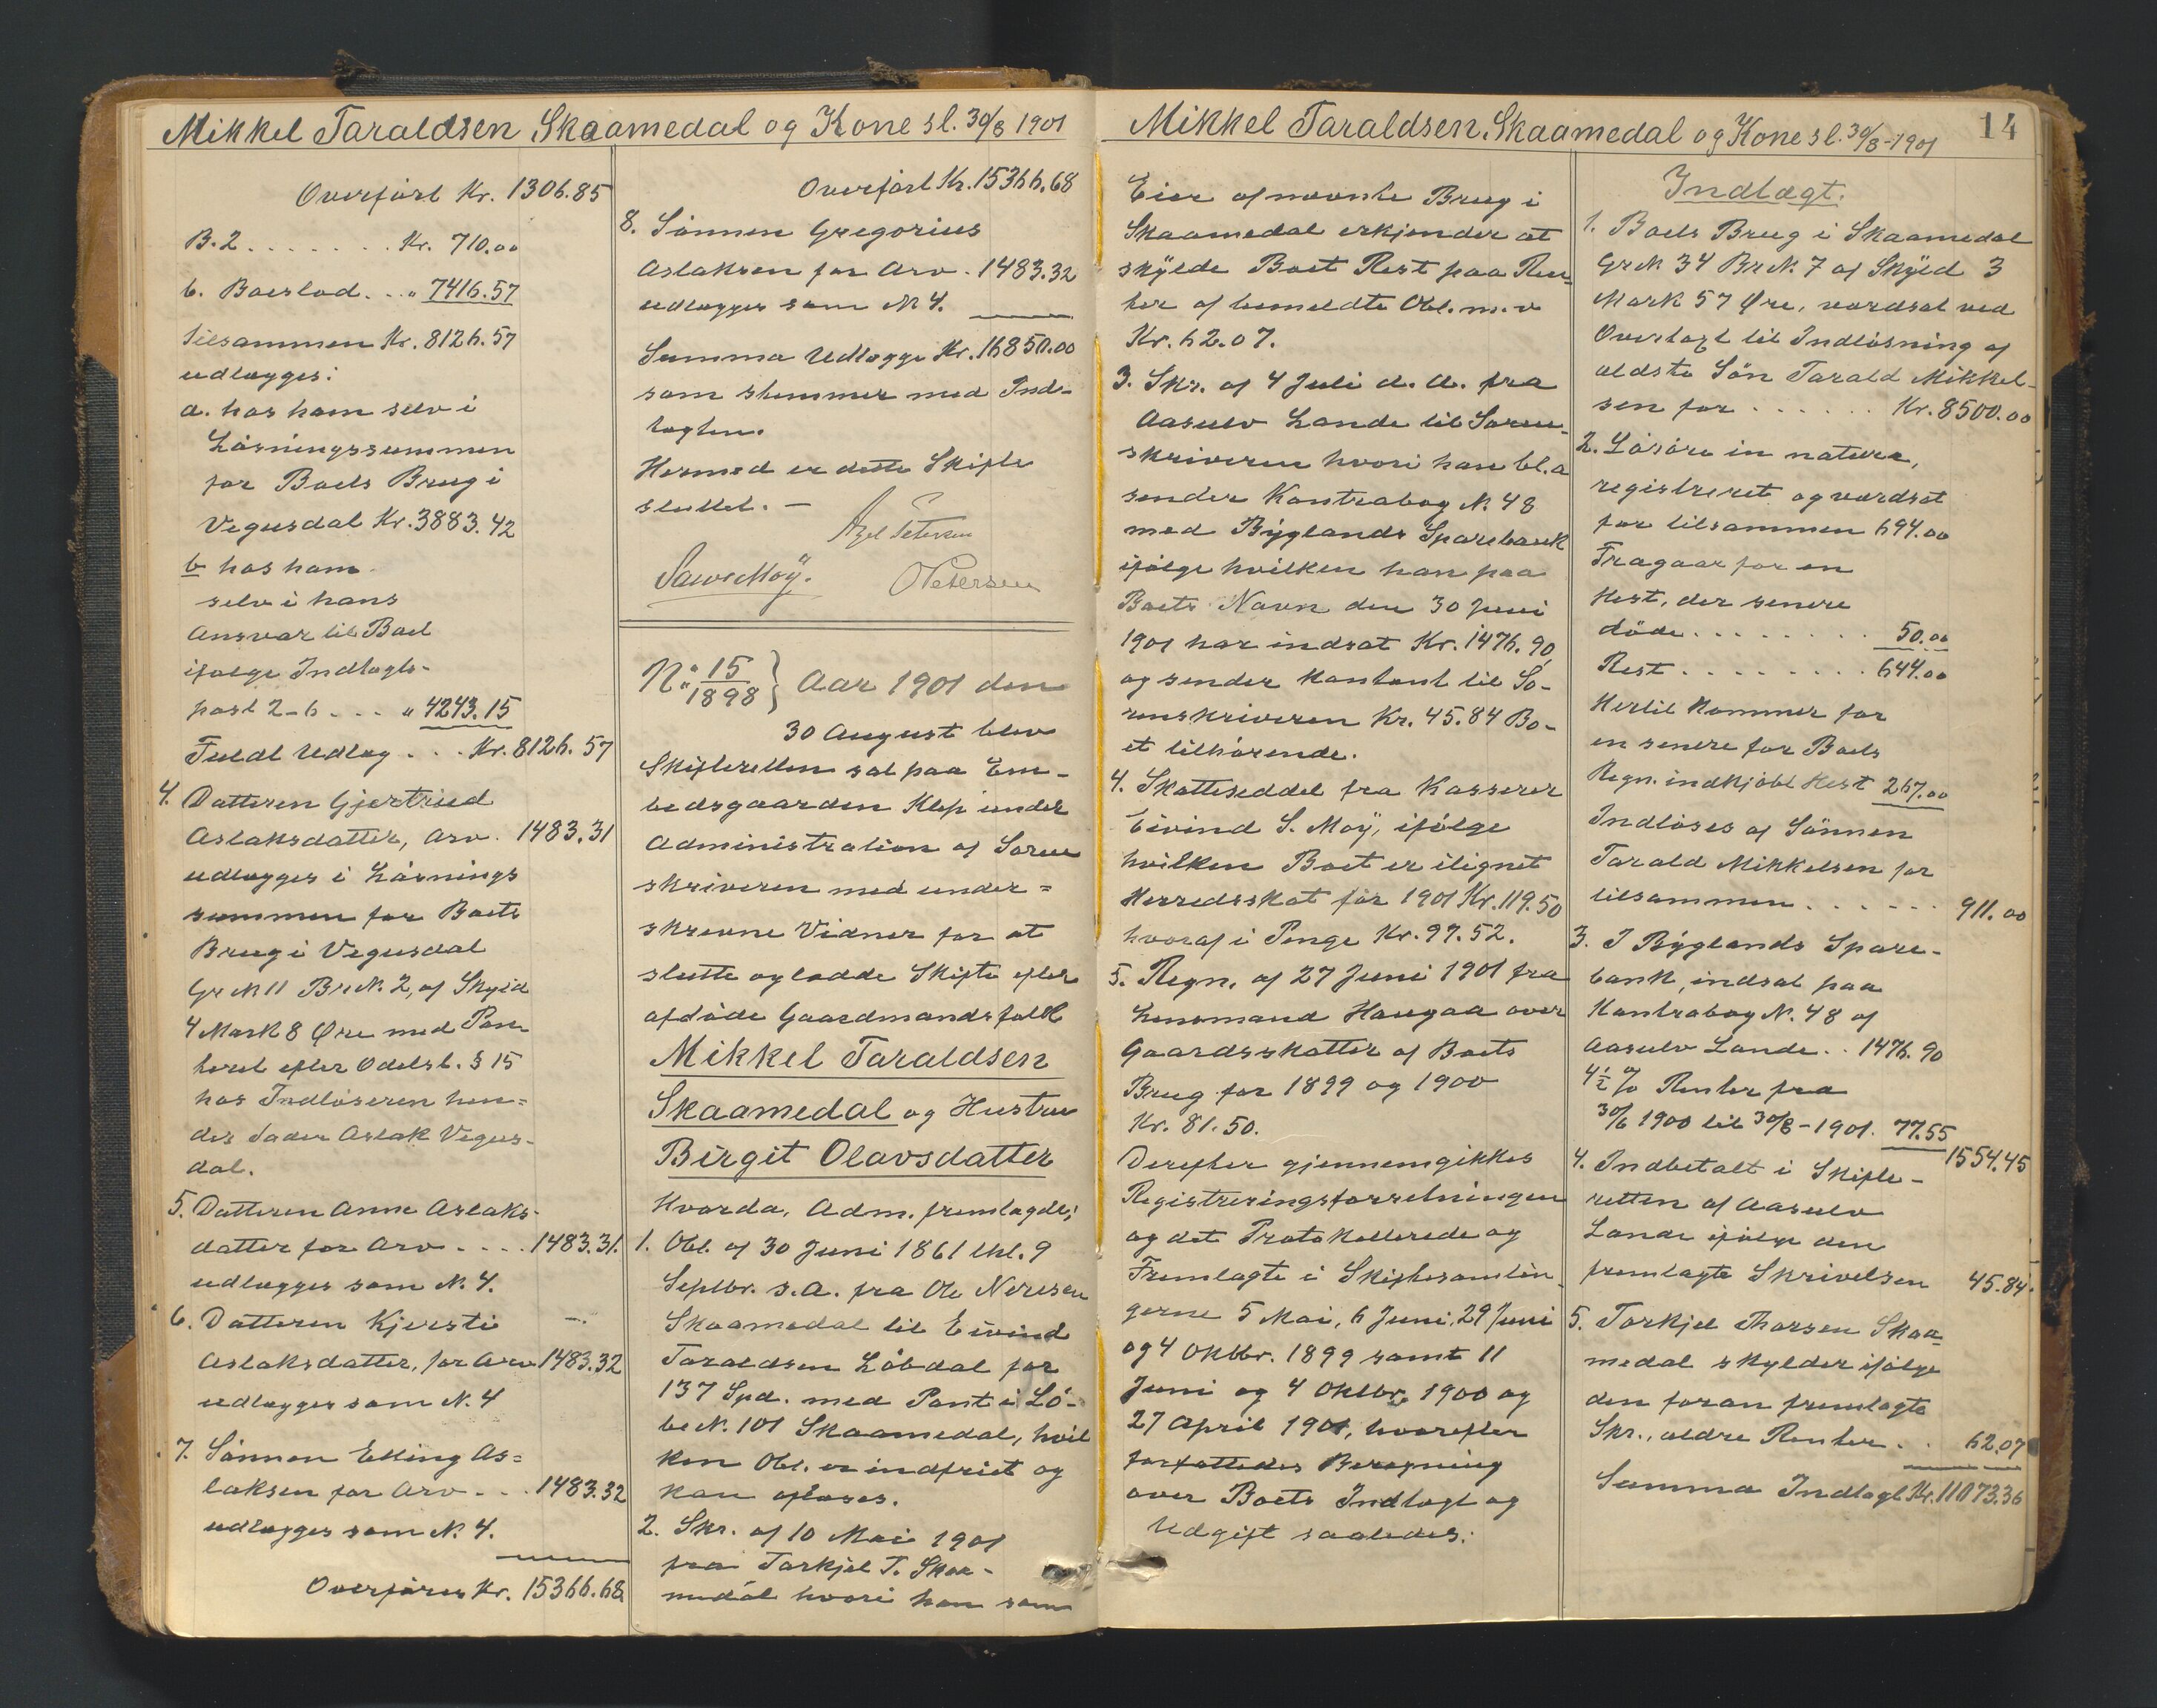 Mikkel Taraldsen Skaamedal og Kone sl. 30/8 1901
Overført Kr. 1306.85
B. 2 . . . . . . . Kr. 710.00
b. Boeslod . . „ 7416.57
tilsammen Kr. 8126.57
udlægges:
a. hos ham selv i
Løsningssummen
for Boets Brug i
Vegusdal Kr. 3883.42
b hos ham
selv i hans
Ansvar til Boet
ifølge Indtægts-
post 2-b . . . „ 4243.15
Fuldt Udlæg . . . Kr. 8126.57
4. Datteren Gjertrud
Aslaksdatter, Arv . 1483.31
udlægges i Løsnings
summen for Boets
Brug i Vegusdal
Gr N 11 Br N. 2, af Skyld
4 Mark 8 Øre med Pan-
teret efter Odelsl. § 15
hos Indløseren hen=
des Fader Aslak Vegus-
dal.
5. Datteren Anne Aslaks-
datter for Arv . . . . 1483.31.
udlægges som N. 4.
6. Datteren Kjersti
Aslaksdatter, for Arv 1483.32
udlægges som N. 4
7. Sønnen Elling As=
laksen for Arv . . . 1483.32
udlægges som N. 4.
Overføres Kr. 15366.68
Overført Kr. 15366.68
8. Sønnen Gregorius
Aslaksen for Arv . 1483.32
udlægges som N. 4.
Summa Udlægge Kr. 16850.00
som stemmer med Ind-
tægten.
Hermed er dette Skifte
sluttet. –
Axel Petersen
O Petersen
N: 15/1898 } Aar 1901 den
30 August blev
Skifteretten sat paa Em-
bedsgaarden Klep under
Administration af Soren
skriveren med under=
skrevne Vidner for at
slutte og lodde Skifte efter
afdøde Gaardmandsfolk
Mikkel Taraldsen
Skaamedal og Hustru
Birgit Olavsdatter
Hvorda, Adm. fremlagde;
1. Obl. af 30 Juni 1861 thl. 9
Septbr. s. A. fra Ole Neresen
Skaamedal til Eivind
Taraldsen Løbdal for
137 Spd. med Pant i Lø-
be N. 101 Skaamedal, hvil
ken Obl. er indfriet og
kan aflæses.
2. Skr. af 10 Mai 1901
fra Torkjel T. Skaa-
medal hvori han som
Mikkel Taraldsen Skaamedal og Kone sl. 30/8-1901
14
Eier af nævnte Brug i
Skaamedal erkjender at
skylde Boet Rest paa Ren
ter af bemeldte Obl. m. v
Kr. 62.07.
3. Skr. af 4 Juli d. A. fra
Aasulv Lande til Soren-
skriveren hvori han bl. a
sender Kontrabog N. 48
med Byglands Sparebank
ifølge hvilken han paa
Boets Navn den 30 Juni
1901 har indsat Kr. 1476.90
og sender kontant til So-
renskriveren Kr. 45.84 Bo-
et tilhørende.
4. Skatteseddel fra Kasserer
Eivind S. Moÿ, ifølge
hvilken Boet er ilignet
Herredsskat for 1901 Kr. 119.50
hvoraf i Penge Kr. 97.52.
5. Regn. af 27 Juni 1901 fra
Lensmand Haugaa over
Gaardsskatter af Boets
Brug for 1899 og 1900
Kr. 81.50.
Derefter gjennemgikkes
Registreringsforretningen
og det Protokollerede og
Fremlagte i Skiftesamlin
gerne 5 Mai, 6 Juni, 29 Juni
og 4 Oktbr. 1899 samt 11
Juni og 4 Oktbr. 1900 og
27 April 1901, hvorefter
forfattedes Beregning
over Boets Indtægt og
Udgift saaledes:
Indtægt.
1. Boets Brug i Skaamedal
Gr N 34 Br N. 7 af Skyld 3
Mark 57 Øre, værdsat ved
Overtaxt til Indløsning af
ældste Søn Tarald Mikkel-
sen for . . . . . . Kr. 8500.00
2. Løsøre in natura,
registreret og værdsat
for tilsammen 694.00
Fragaar for en
Hest, der senere
døde . . . . . . . . 50.00
Rest . . . . . . . . . 644.00
Hertil kommer for
en senere for Boets
Regn. indkjøbt Hest 267.00
Indløses af Sønnen
Tarald Mikkelsen for
tilsammen . . . . . . 911.00
3. I Byglands Spare-
bank, indsat paa
Kontrabog N. 48 af
Aasulv Lande . . 1476.90
4½ % Renter fra
30/6 1900 til 30/8-1901. 77.55
1554.45
4. Indbetalt i Skifte-
retten af Aasulv
Lande ifølge den
fremlagte Skrivelsen 45.84.
5. Torkjel Thorsen Skaa-
medal skylder ifølge
den foran fremlagte
Skr., ældre Renter . . 62.07
Summa Indtægt Kr. 11073.36